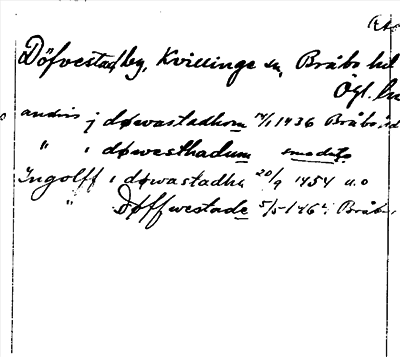 Döfvestad by, Kvillinge sn, Bråbo hd
Ögl. län
andris j døwastadhom 1436 Bråbo
" i døwesthadum
Ingolff i døwastadha 20/9 1454 u.o
" Døffwestade 5/5 146 Bråbo